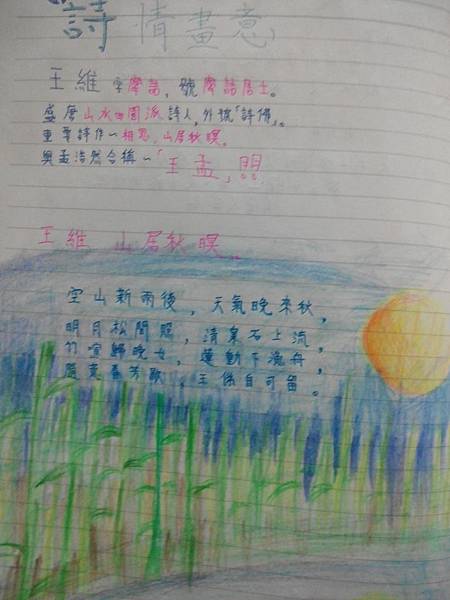 詩情畫意
王維 字摩詰，號摩詰居士。
盛唐山水田園派詩人，外號「詩佛」。
重要詩作～相思，山居秋暝。
與孟浩然合稱～「王孟」
王維 山居秋暝
空山新雨後，天氣晚來秋，
明月松間照，清泉石上流，
竹喧歸晚女，蓮動下漁舟，
隨意春芳歇，王係自可留。